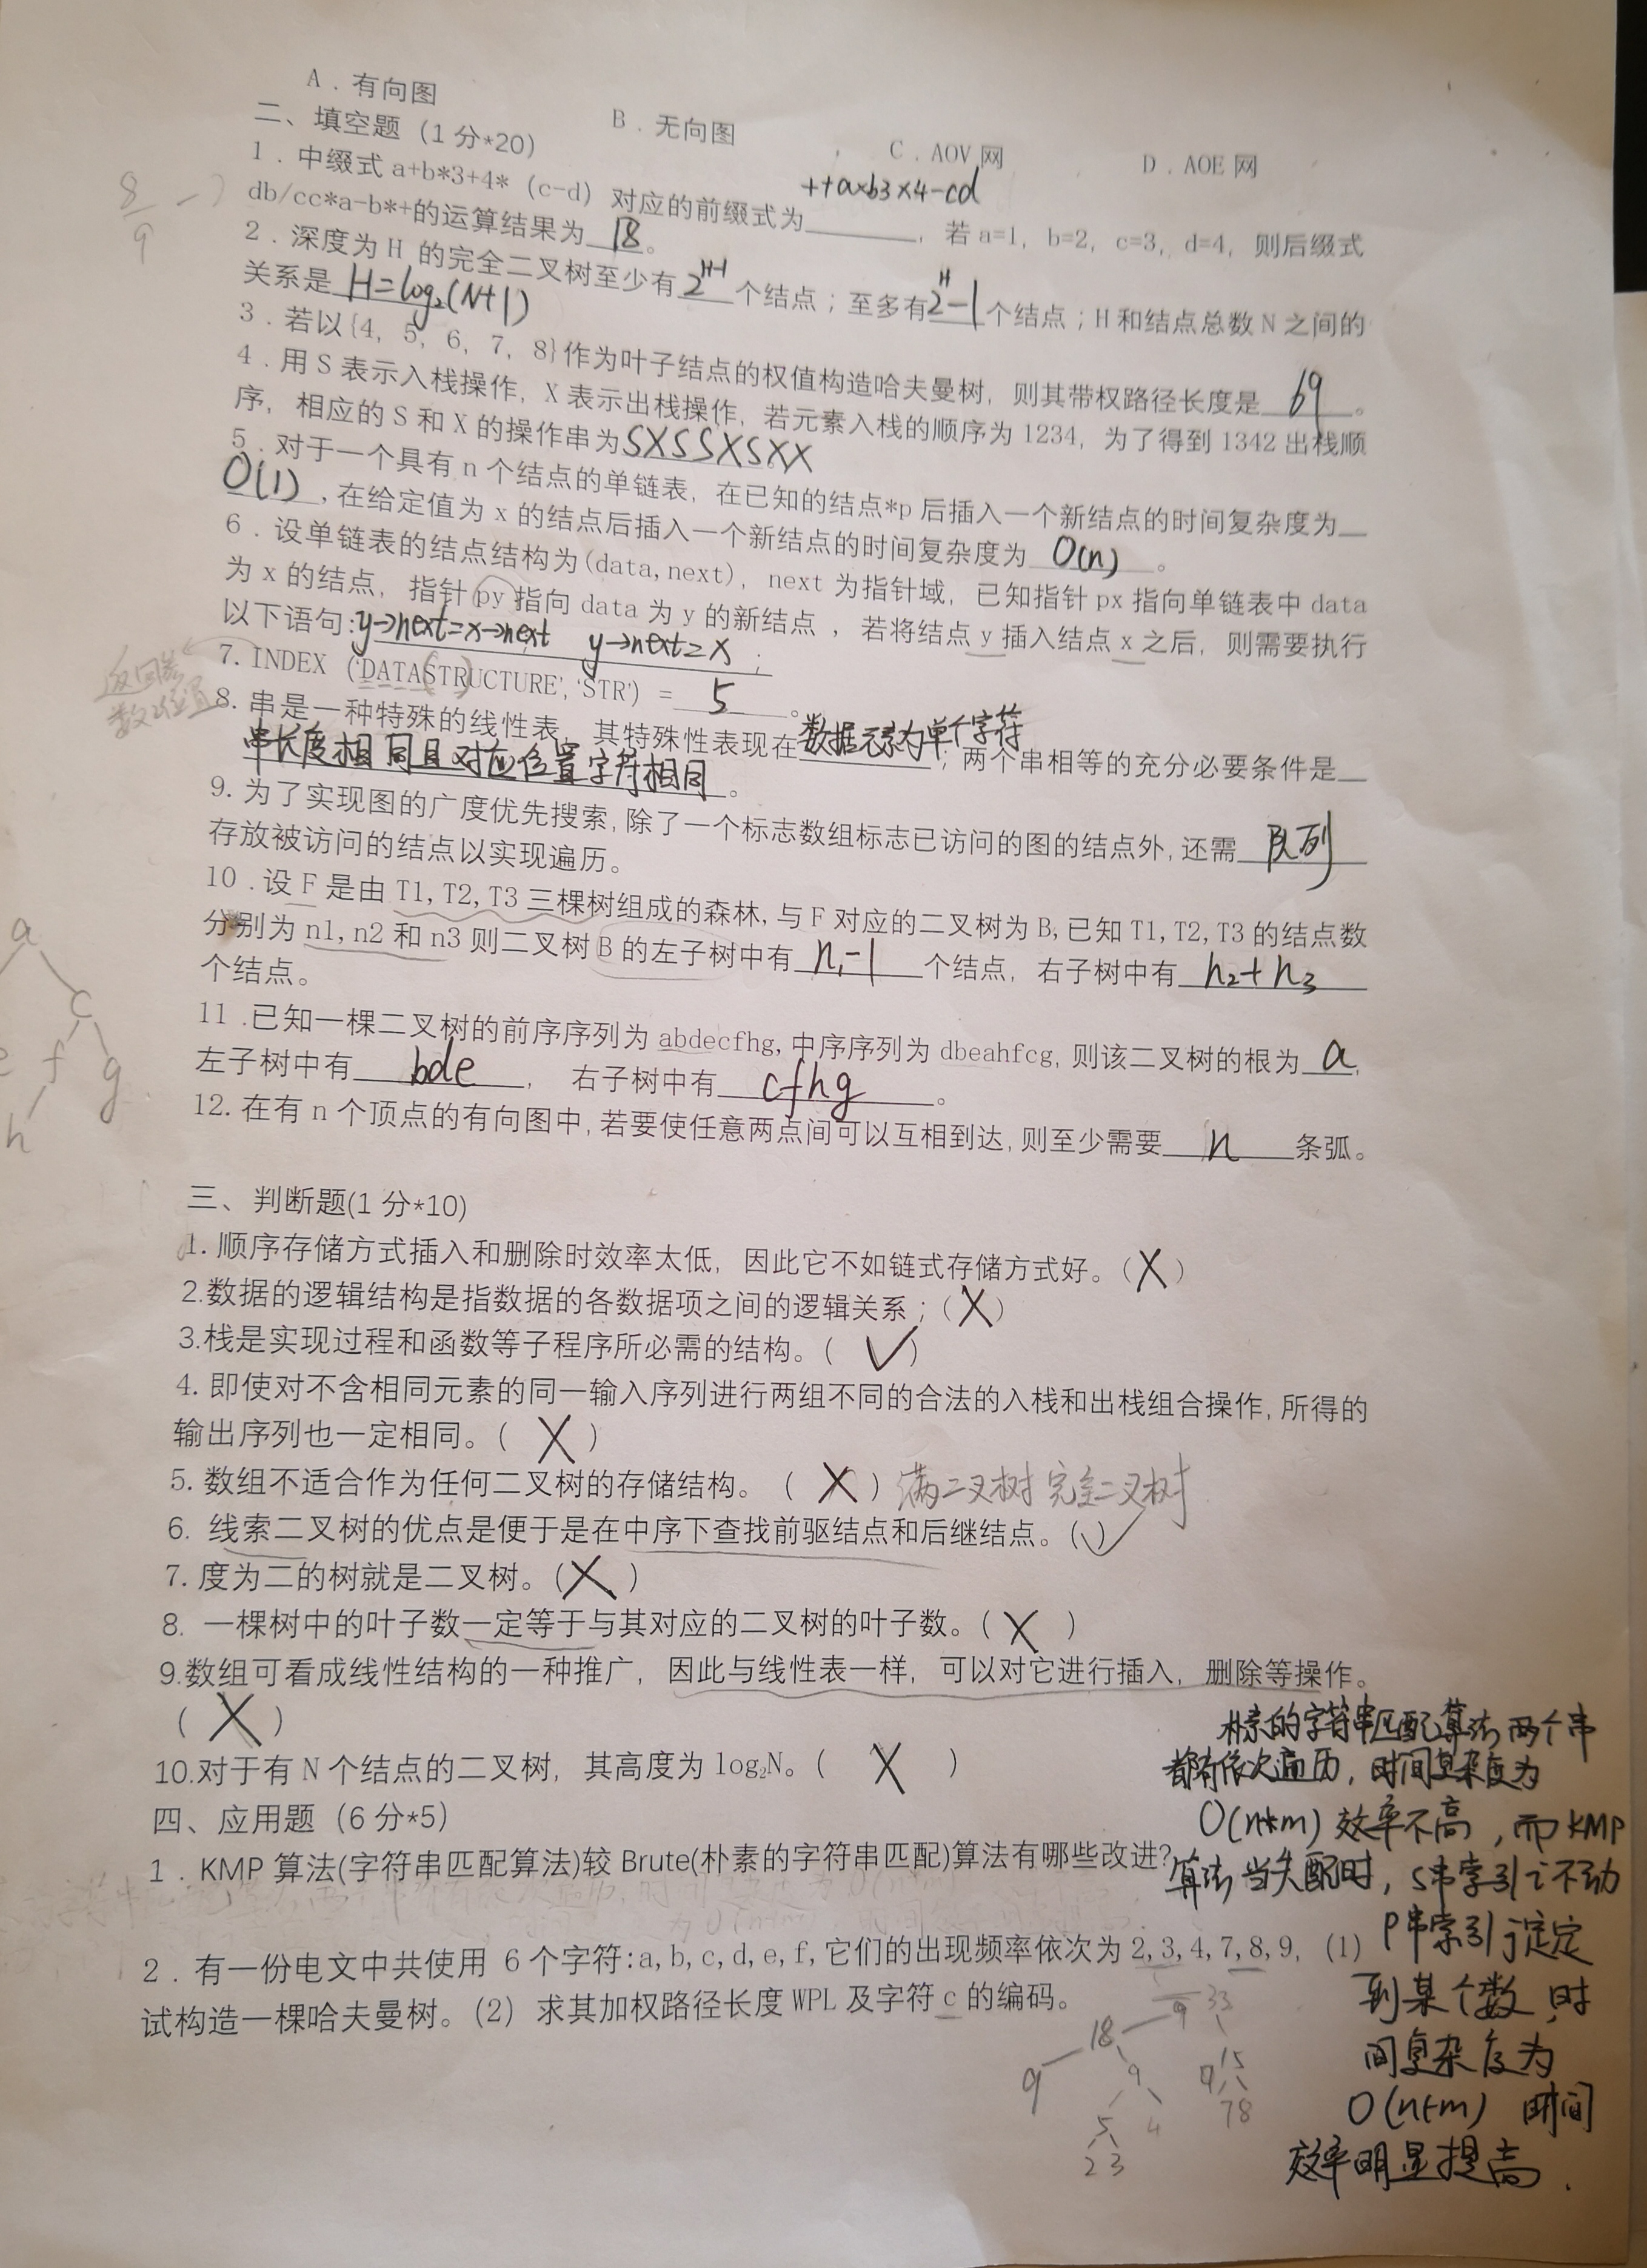 A．有向图 B．无向图 C．AOV 网 D．AOE 网
二、填空题（1 分*20）
++a×b3×4-cd
1．中缀式 a+b*3+4*（c-d）对应的前缀式为________，若 a=1，b=2，c=3，d=4，则后缀式
8/9
db/cc*a-b*+的运算结果为 18 。
2．深度为 H 的完全二叉树至少有 2^H-1 个结点；至多有 2^H-1 个结点；H 和结点总数 N 之间的
关系是 H=log₂(N+1)
3．若以{4，5，6，7，8}作为叶子结点的权值构造哈夫曼树，则其带权路径长度是 69 。
4．用 S 表示入栈操作，X 表示出栈操作，若元素入栈的顺序为 1234，为了得到 1342 出栈顺
序，相应的 S 和 X 的操作串为 SXSSXSXX
5．对于一个具有 n 个结点的单链表，在已知的结点*p 后插入一个新结点的时间复杂度为__
O(1) ,在给定值为 x 的结点后插入一个新结点的时间复杂度为 O(n) 。
6．设单链表的结点结构为(data,next)，next 为指针域，已知指针 px 指向单链表中 data
为 x 的结点，指针 py 指向 data 为 y 的新结点 ，若将结点 y 插入结点 x 之后，则需要执行
以下语句: y→next=x→next y→next=x ；
7. INDEX（‘DATASTRUCTURE’, ‘STR’）= 5 。
返回
数 位置
8. 串是一种特殊的线性表，其特殊性表现在 数据元素为单个字符 ；两个串相等的充分必要条件是__
串长度相同且对应位置字符相同 。
9. 为了实现图的广度优先搜索,除了一个标志数组标志已访问的图的结点外,还需 队列
存放被访问的结点以实现遍历。
10 .设 F 是由 T1,T2,T3 三棵树组成的森林,与 F 对应的二叉树为 B,已知 T1,T2,T3 的结点数
分别为 n1,n2 和 n3 则二叉树 B 的左子树中有 n₁-1 个结点，右子树中有 n₂+n₃
个结点。
11 .已知一棵二叉树的前序序列为 abdecfhg,中序序列为 dbeahfcg,则该二叉树的根为 a ,
左子树中有 bde ， 右子树中有 cfhg 。
a
c
e f g
h
12. 在有 n 个顶点的有向图中,若要使任意两点间可以互相到达,则至少需要 n 条弧。
三、判断题(1 分*10)
1. 顺序存储方式插入和删除时效率太低，因此它不如链式存储方式好。（ X ）
2.数据的逻辑结构是指数据的各数据项之间的逻辑关系；（ X ）
3.栈是实现过程和函数等子程序所必需的结构。（ ✓ ）
4. 即使对不含相同元素的同一输入序列进行两组不同的合法的入栈和出栈组合操作,所得的
输出序列也一定相同。（ X ）
5. 数组不适合作为任何二叉树的存储结构。（ X ）满二叉树 完全二叉树
6. 线索二叉树的优点是便于是在中序下查找前驱结点和后继结点。（✓）
7. 度为二的树就是二叉树。（ X ）
8. 一棵树中的叶子数一定等于与其对应的二叉树的叶子数。（ X ）
9.数组可看成线性结构的一种推广，因此与线性表一样，可以对它进行插入，删除等操作。
（ X ）
10.对于有 N 个结点的二叉树，其高度为 log₂N。（ X ）
四、应用题（6 分*5）
1．KMP 算法(字符串匹配算法)较 Brute(朴素的字符串匹配)算法有哪些改进?
朴素的字符串匹配算法两个串
都有依次遍历，时间复杂度为
O(n*m) 效率不高，而 KMP
算法当失配时，S串索引 i 不动
P串索引 j 定
到某个数，时
间复杂度为
O(n+m) 时间
效率明显提高．
2．有一份电文中共使用 6 个字符:a,b,c,d,e,f,它们的出现频率依次为 2,3,4,7,8,9,（1）
试构造一棵哈夫曼树。（2）求其加权路径长度 WPL 及字符 c 的编码。
9 33
18 15
9 9 78
5 4
2 3